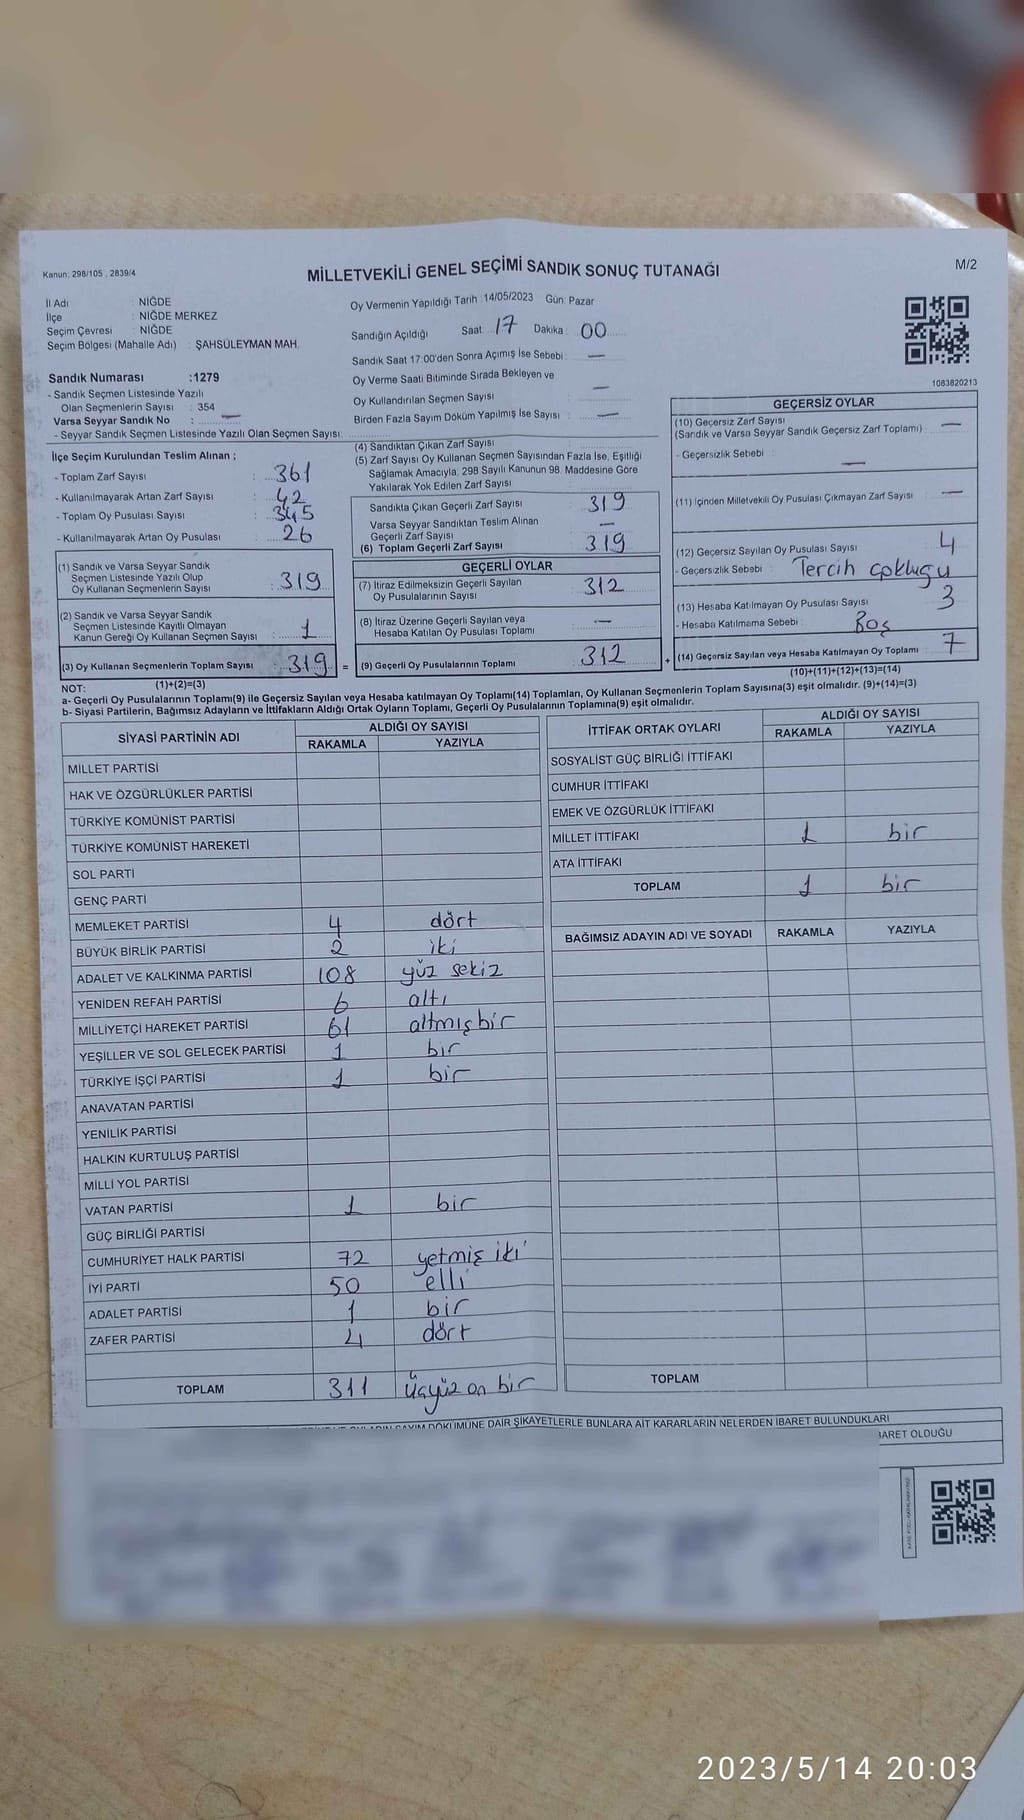 Kanun: 298/105 , 2839/4
MİLLETVEKİLİ GENEL SEÇİMİ SANDIK SONUÇ TUTANAĞI
M/2
İl Adı : NİĞDE
İlçe : NİĞDE MERKEZ
Seçim Çevresi : NİĞDE
Seçim Bölgesi (Mahalle Adı) : ŞAHSÜLEYMAN MAH.
Sandık Numarası :1279
- Sandık Seçmen Listesinde Yazılı
Olan Seçmenlerin Sayısı : 354
Varsa Seyyar Sandık No : —
- Seyyar Sandık Seçmen Listesinde Yazılı Olan Seçmen Sayısı:
Oy Vermenin Yapıldığı Tarih :14/05/2023 Gün: Pazar
Sandığın Açıldığı Saat: 17 Dakika: 00
Sandık Saat 17:00'den Sonra Açımış İse Sebebi : —
Oy Verme Saati Bitiminde Sırada Bekleyen ve
Oy Kullandırılan Seçmen Sayısı —
Birden Fazla Sayım Döküm Yapılmış İse Sayısı : —
1083820213
İlçe Seçim Kurulundan Teslim Alınan ;
- Toplam Zarf Sayısı : 361
- Kullanılmayarak Artan Zarf Sayısı : 42
- Toplam Oy Pusulası Sayısı : 345
- Kullanılmayarak Artan Oy Pusulası : 26
(1) Sandık ve Varsa Seyyar Sandık
Seçmen Listesinde Yazılı Olup
Oy Kullanan Seçmenlerin Sayısı : 319
(2) Sandık ve Varsa Seyyar Sandık
Seçmen Listesinde Kayıtlı Olmayan
Kanun Gereği Oy Kullanan Seçmen Sayısı : 1
(3) Oy Kullanan Seçmenlerin Toplam Sayısı : 319 =
(1)+(2)=(3)
(4) Sandıktan Çıkan Zarf Sayısı :
(5) Zarf Sayısı Oy Kullanan Seçmen Sayısından Fazla İse, Eşitliği
Sağlamak Amacıyla; 298 Sayılı Kanunun 98. Maddesine Göre
Yakılarak Yok Edilen Zarf Sayısı :
Sandıkta Çıkan Geçerli Zarf Sayısı : 319
Varsa Seyyar Sandıktan Teslim Alınan
Geçerli Zarf Sayısı : —
(6) Toplam Geçerli Zarf Sayısı : 319
GEÇERLİ OYLAR
(7) İtiraz Edilmeksizin Geçerli Sayılan
Oy Pusulalarının Sayısı : 312
(8) İtiraz Üzerine Geçerli Sayılan veya
Hesaba Katılan Oy Pusulası Toplamı : —
(9) Geçerli Oy Pusulalarının Toplamı : 312 +
GEÇERSİZ OYLAR
(10) Geçersiz Zarf Sayısı
(Sandık ve Varsa Seyyar Sandık Geçersiz Zarf Toplamı) : —
- Geçersizlik Sebebi : —
(11) İçinden Milletvekili Oy Pusulası Çıkmayan Zarf Sayısı : —
(12) Geçersiz Sayılan Oy Pusulası Sayısı : 4
- Geçersizlik Sebebi : Tercih çokluğu
(13) Hesaba Katılmayan Oy Pusulası Sayısı : 3
- Hesaba Katılmama Sebebi : Boş
(14) Geçersiz Sayılan veya Hesaba Katılmayan Oy Toplamı : 7
(10)+(11)+(12)+(13)=(14)
NOT:
a- Geçerli Oy Pusulalarının Toplamı(9) ile Geçersiz Sayılan veya Hesaba katılmayan Oy Toplamı(14) Toplamları, Oy Kullanan Seçmenlerin Toplam Sayısına(3) eşit olmalıdır. (9)+(14)=(3)
b- Siyasi Partilerin, Bağımsız Adayların ve İttifakların Aldığı Ortak Oyların Toplamı, Geçerli Oy Pusulalarının Toplamına(9) eşit olmalıdır.
SİYASİ PARTİNİN ADI ALDIĞI OY SAYISI
RAKAMLA YAZIYLA
MİLLET PARTİSİ
HAK VE ÖZGÜRLÜKLER PARTİSİ
TÜRKİYE KOMÜNİST PARTİSİ
TÜRKİYE KOMÜNİST HAREKETİ
SOL PARTİ
GENÇ PARTİ
MEMLEKET PARTİSİ 4 dört
BÜYÜK BİRLİK PARTİSİ 2 iki
ADALET VE KALKINMA PARTİSİ 108 yüz sekiz
YENİDEN REFAH PARTİSİ 6 altı
MİLLİYETÇİ HAREKET PARTİSİ 61 altmışbir
YEŞİLLER VE SOL GELECEK PARTİSİ 1 bir
TÜRKİYE İŞÇİ PARTİSİ 1 bir
ANAVATAN PARTİSİ
YENİLİK PARTİSİ
HALKIN KURTULUŞ PARTİSİ
MİLLİ YOL PARTİSİ
VATAN PARTİSİ 1 bir
GÜÇ BİRLİĞİ PARTİSİ
CUMHURİYET HALK PARTİSİ 72 yetmiş iki
İYİ PARTİ 50 elli
ADALET PARTİSİ 1 bir
ZAFER PARTİSİ 4 dört
TOPLAM 311 üçyüz on bir
İTTİFAK ORTAK OYLARI ALDIĞI OY SAYISI
RAKAMLA YAZIYLA
SOSYALİST GÜÇ BİRLİĞİ İTTİFAKI
CUMHUR İTTİFAKI
EMEK VE ÖZGÜRLÜK İTTİFAKI
MİLLET İTTİFAKI 1 bir
ATA İTTİFAKI
TOPLAM 1 bir
BAĞIMSIZ ADAYIN ADI VE SOYADI RAKAMLA YAZIYLA
TOPLAM
SAYIM DÖKÜMÜNE DAİR ŞİKAYETLERLE BUNLARA AİT KARARLARIN NELERDEN İBARET BULUNDUKLARI
İBARET OLDUĞU
2023/5/14 20:03